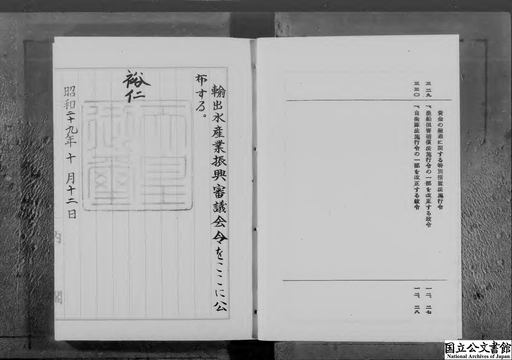 三二九
三三〇
資金の融通に関する特別措置法施行令
漁船損害補償法施行令の一部を改正する政令
自衛隊法施行令の一部を改正する政令
一二、二七
一二、二八
輸出水産業振興審議会令をここに公
布する。
裕仁
昭和二十九年十月十二日
内閣
国立公文書館
National Archives of Japan